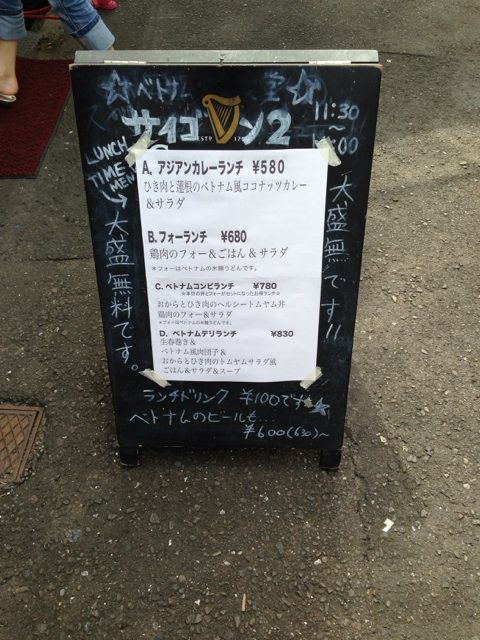 ☆ベトナム
堂☆
サイゴン2
11:30
〜
:00
LUNCH
TIME
MENU
大盛無料です。
大盛無 です!!
A. アジアンカレーランチ ¥580
ひき肉と蓮根のベトナム風ココナッツカレー
&サラダ
B. フォーランチ ¥680
鶏肉のフォー&ごはん&サラダ
*フォーはベトナムの米麺うどんです。
C. ベトナムコンビランチ ¥780
☆本日の丼とフォーがセットになったお得ランチ☆
おからとひき肉のヘルシートムヤム丼
鶏肉のフォー&サラダ
*フォーはベトナムの米麺うどんです。
D. ベトナムデリランチ ¥830
生春巻き&
ベトナム風肉団子&
おからとひき肉のトムヤムサラダ風
ごはん&サラダ&スープ
ランチドリンク ¥100です★
ベトナムのビールも...
¥600(630)〜